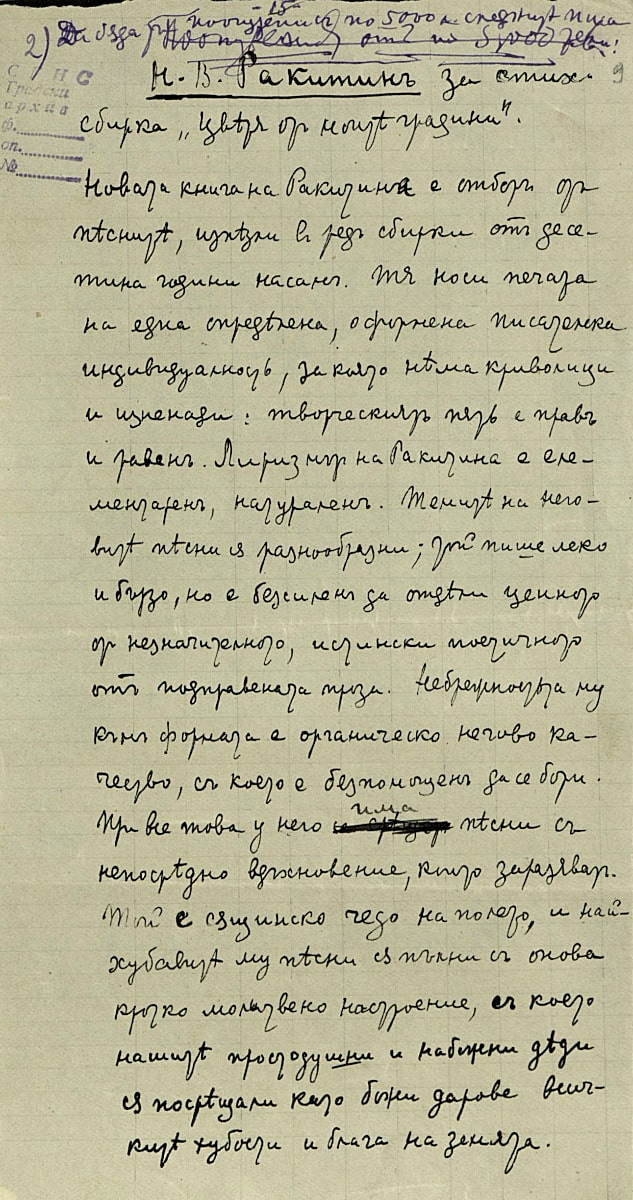 15
2) Да бѫдатъ поощрени съ по 5000 л. следнитѣ лица
Поощрения отъ по 5,000 лева:
С Н С
Градски
архив
ф.
оп.
№
9
Н. В. Ракитинъ за стихо-
сбирка „Цвѣтя отъ моитѣ градини“.
Новата книга на Ракитина е отборъ отъ
пѣснитѣ, излѣзли въ редъ сбирки отъ десе-
тина години насамъ. Тя носи печата
на една опредѣлена, оформена писателска
индивидуалность, за която нѣма криволици
и изненади: творческиятъ пѫть е правъ
и равенъ. Лиризмътъ на Ракитина е еле-
ментаренъ, натураленъ. Темитѣ на него-
витѣ пѣсни сѫ разнообразни; той пише леко
и бързо, но е безсиленъ да отдѣли ценното
отъ незначителното, истински поетичното
отъ подправената проза. Небрежностьта му
къмъ формата е органическо негово ка-
чество, съ което е безпомощенъ да се бори.
При все това у него има пѣсни съ
непосрѣдно вдъхновение, които заразяватъ.
Той е сѫщинско чедо на полето, и най-
хубавитѣ му пѣсни сѫ пълни съ онова
кротко молитвено настроение, съ което
нашитѣ простодушни и набожни дѣди
сѫ посрѣщали като божи дарове всич-
китѣ хубости и блага на земята.